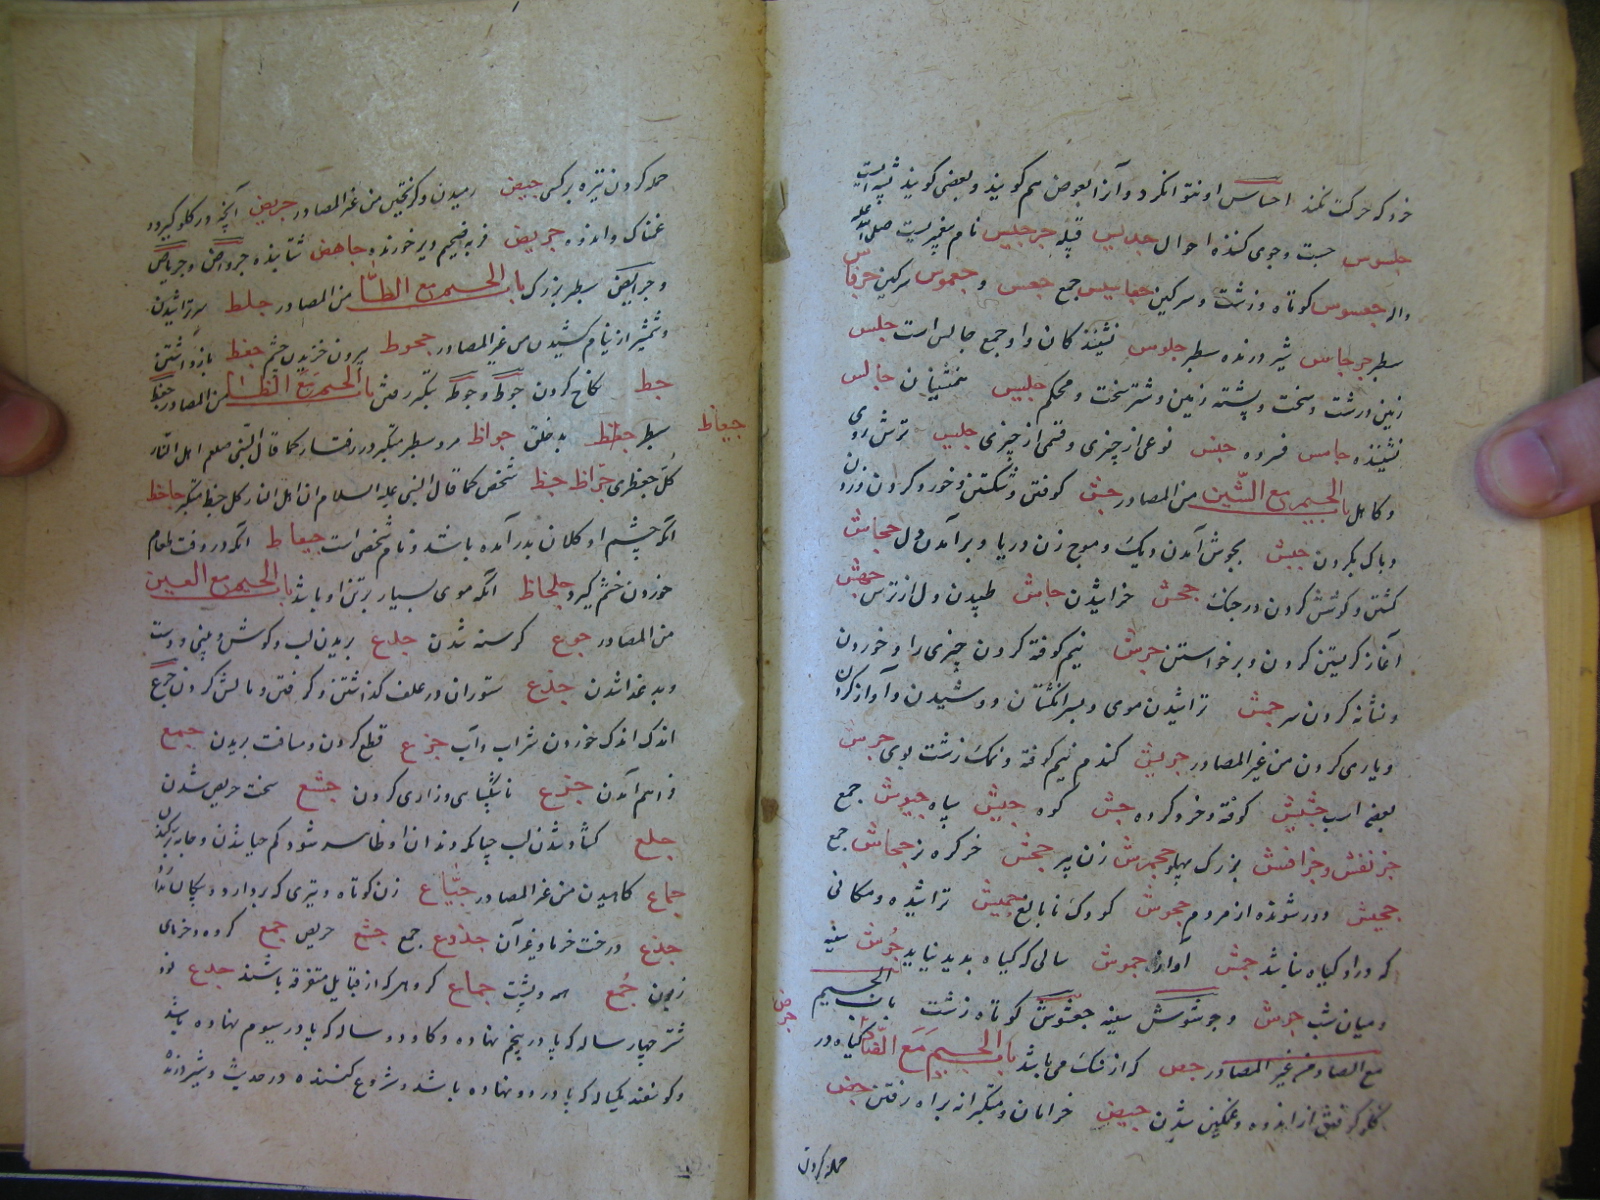 خرد که حرکت نکند احساس او نتوانکرد و آنرا بعوض هم کویند و بعضی کویند پشه است
جلسوس جست و جوی کننده احوال جدیس قبیله جرجیس نام پیغمبریست صلی الله علیه
واله جعسوس کوتاه و زشت و سرکین جعاسیس جمع جعس و جعموس سرکین جرفاس
سطبر جرجاس شیر درنده سطبر جلوس نشینند کان و او جمع جالس است جلس
زمین درشت و سخت و پشته زمین و شتر سخت و محکم جلیس همنشینان جالس
نشیننده جامس فسرده جنس نوعی از چیزی و قسمی از چیزی جلیس ترش روی
و کاهل باب الجیم مع الشین من المصادر جش کوفتن و شکستن و خورد کردن
و پاک بکردن جیش بجوش آمدن دیک و موج زدن دریا و برآمدن دل جحاش
کشتن و کوشش کردن در جنک جحش خراشیدن جاش طپیدن دل از ترس جهش
آغاز کریستن کردن و برخواستن جرش نیم کوفته کردن چیزی را و خوردن
و نشانه کردن سر جمش تراشیدن موی و بسر انکشتان دوشیدن و آواز کردن
و یاری کردن من غیر المصادر جریش کندم نیم کوفته و نمک زشت بوی جرس
بعضی اسب جشیش کوفته و خرد کرده جش کوه جیش سپاه جیوش جمع
جزنفش و جرافش بزرک پهلو جحمرش زن پیر جحش خر کره نر جحاش جمع
جحیش دور شونده از مردم جحوش کودک نابالغ جمیش تراشیده و مکانی
که در او کیاه نباشد جمش آواز جموش سالی که کیاه بدید نیاید جرش سینه
و میان شب جوش و جوشوش سینه جعشوش کوتاه زشت باب الجیم
مع الصاد من غیر المصادر جص که از سنک می باشد باب الجیم مع الضاد کیاه در
کلو کرفتن از اندوه و غمکین شدن جیض خرامان و متکبرانه براه رفتن جض
حمله کردن
حمله کردن نیزه بر کسی جیض رمیدن و کریختن من غیر المصادر جریض آنچه در کلو کیرد
غمناک و اندوه جریض فربه ضخیم و پر خورنده جاهض شتابنده جرواض و جریاض
و جرایض سطبر بزرک باب الجیم مع الطا من المصادر جلط سر تراشیدن
و شمشیر از نیام کشیدن من غیر المصادر جحوط بیرون خزیدن چشم جعظ باز داشتن
جظ نکاح کردن جوظ و جوظه بتکبر رفتن باب الجیم مع الظا من المصادر جعظ
جیعاظ
سطبر جظ بد خلق جواظ مرد سطبر متکبر در رفتار کما قال النبی صلعم اهل النار
کل جعظری جواظ جظ شخص کما قال النبی علیه السلام ان اهل النار کل جظ متکبر جاحظ
آنکه چشم او کلان بدر آمده باشد و نام شخصی است جیعاظ آنکه در وقت طعام
خوردن خشم کیرد جلحاظ آنکه موی بسیار بر تن او باشد باب الجیم مع العین
من المصادر جوع کرسنه شدن جدع بریدن لب و کوش و بینی و دست
و بد غذا شدن جذع ستوران در علف کذاشتن و کرفتن و مالش کردن جرع
اندک اندک خوردن شراب و آب جزع قطع کردن و مسافت بریدن جمع
فراهم آمدن جزع ناشکیبائی و زاری کردن جشع سخت حریص شدن
جلع کشاده شدن لب چنانکه دندان او ظاهر شود و کم حیا شدن و جامه بر کندن
جماع کاهیدن من غیر المصادر جبّاع زن کوتاه و تیری که بر دارد و پیکان ندارد
جذع درخت خرما و غیر آن جذوع جمع جشع حریص جمع کروه و خرمای
زبون جُمع همه و پشت جماع کروهی که از قبایل متفرقه باشند جذع
شتر چهار ساله که پا در پنجم نهاده و کاو دو ساله که پا در سیوم نهاده باشد
و کوسفند یکساله که پا در دو نهاده باشد و شروع کننده در حدیث و شیر درنده
جرض